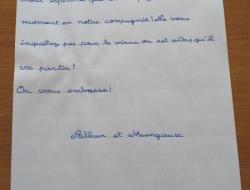 moment en notre compagnie ! Ne vous
inquiétez pas pour le virus, on est sûrs qu'il
va partir !
On vous embrasse !
et